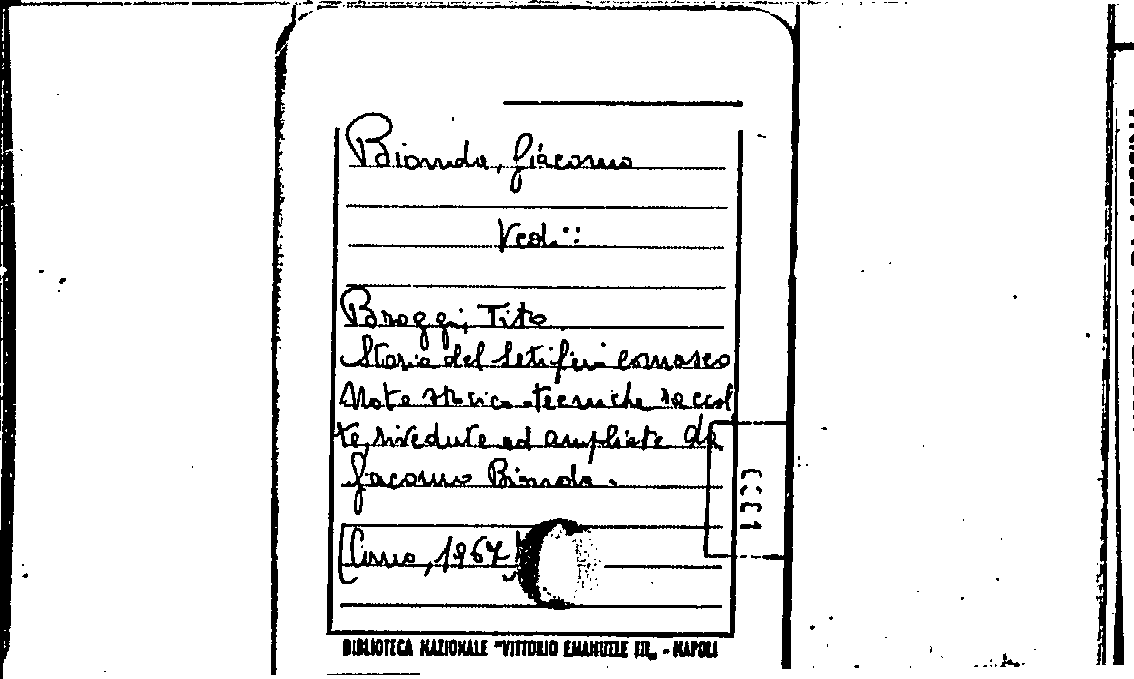 Bionda, Giacomo
Vedi:
Broggi, Tito
Storia del setificio comasco
Note storico-tecniche raccol
te, rivedute ed ampliate da
Giacomo Bionda.
(Como, 1967)
BIBLIOTECA NAZIONALE "VITTORIO EMANUELE III„ - NAPOLI